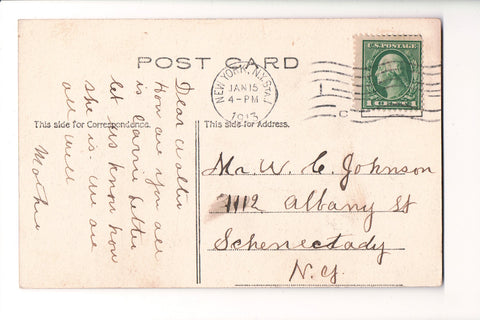 POST CARD
NEW YORK, N.Y. STA.
JAN 15
4-PM
1913
U.S. POSTAGE
This side for Correspondence.
This side for Address.
Dear
How are you all
is Carrie better
let us know how
she is. We are
all well
Mother
Mr. W. C. Johnson
1112 Albany St
Schenectady
N.Y.